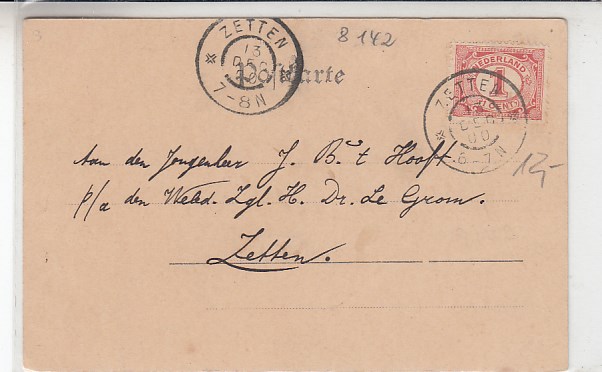 8 142
ZETTEN
13
DEC
00
7-8N
Postkarte
NEDERLAND
1
CENT
ZETTEN
13
DEC
00
6-7N
12,-
Aan den Jongenheer J. B. 't Hooft
p/a den Weled. Zgl. H. Dr. Le Grom.
Zetten.